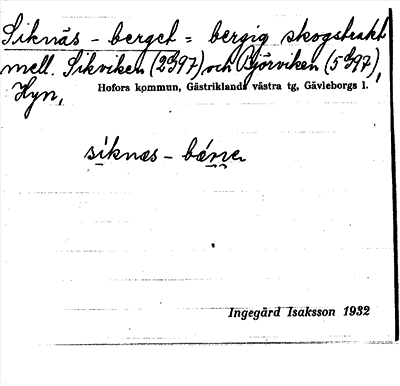 Siknäs-berget = bergig skogstrakt
mell. Sikviken (2G97) och Björviken (5G97),
Hyn,
Hofors kommun, Gästriklands västra tg, Gävleborgs l.
siknæs-bærre
Ingegärd Isaksson 1932